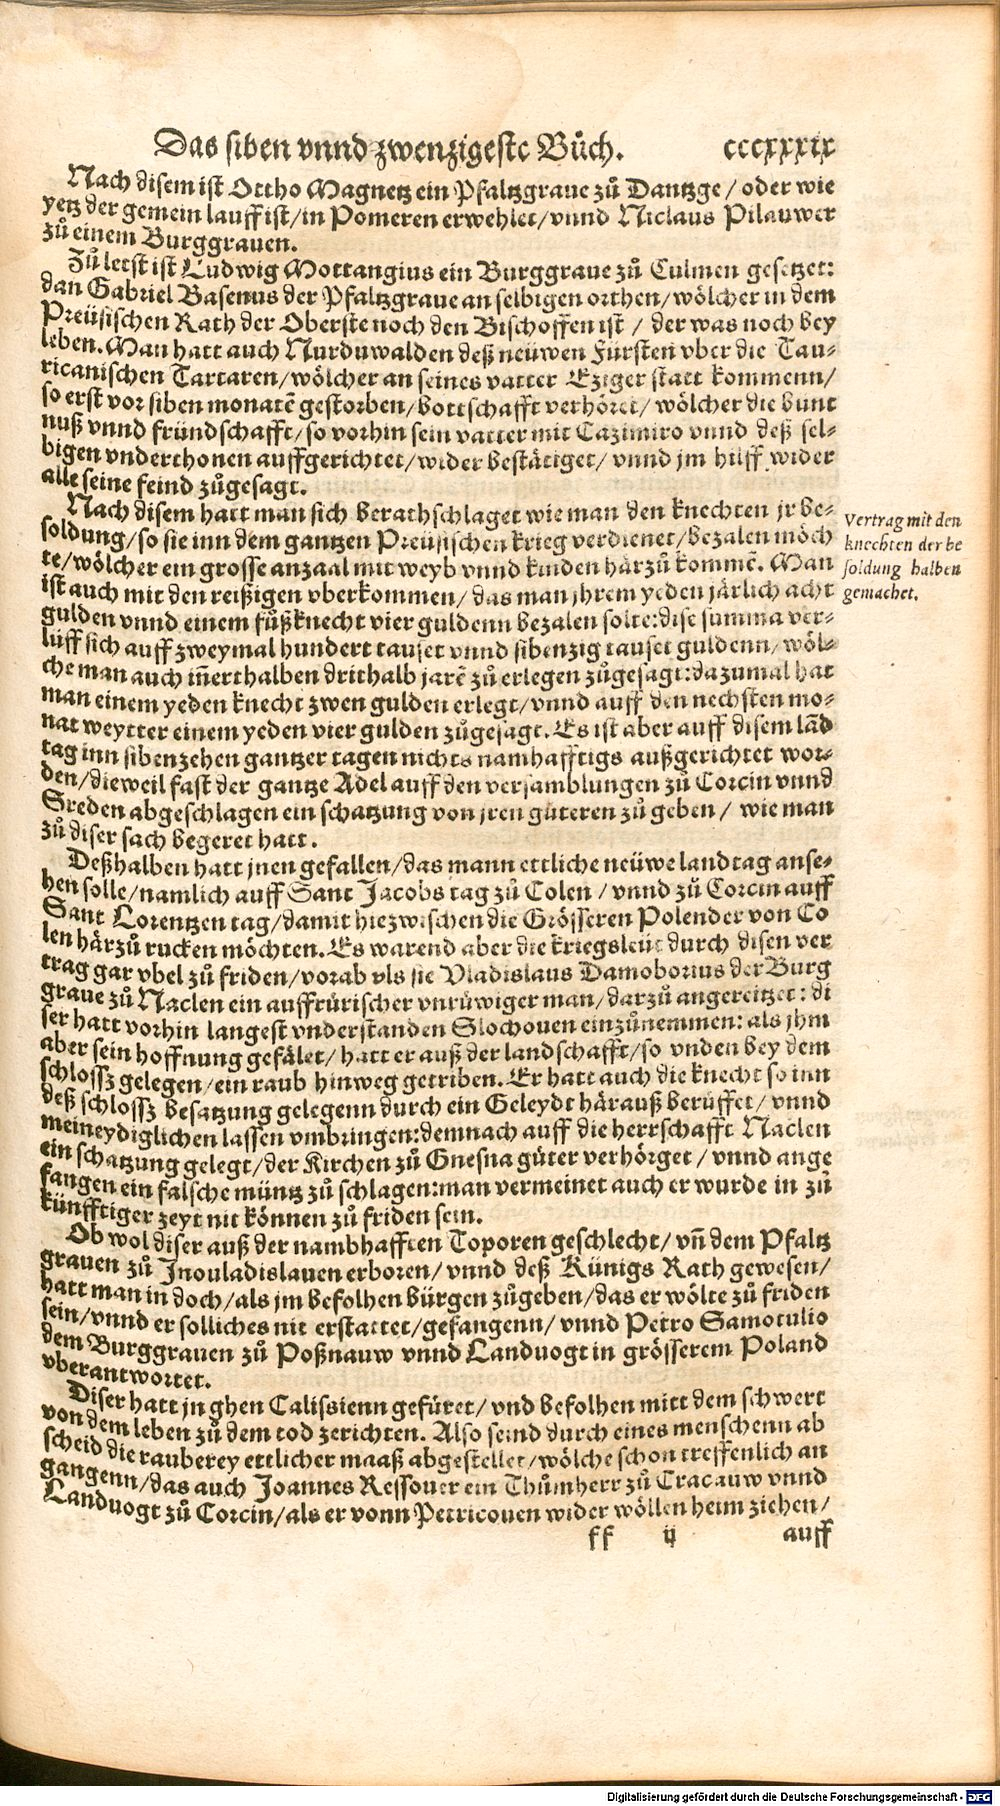 Das siben vnnd zwenzigeste Bůch. cccxxxix
Nach disem ist Ottho Magnetz ein Pfaltzgraue zů Dantzge / oder wie
yetz der gemein lauff ist / in Pomeren erwehlet / vnnd Niclaus Pilauwer
zů einem Burggrauen.
Zů letst ist Ludwig Mottangius ein Burggraue zů Culmen gesetzet:
dan Gabriel Basenus der Pfaltzgraue an selbigen orthen / wölcher in dem
Preüsischen Rath der Oberste noch den Bischoffen ist / der was noch bey
leben. Man hatt auch Nurduwalden deß neüwen Fürsten vber die Tau⸗
ricanischen Tartaren / wölcher an seines vatter Eziger statt kommenn /
so erst vor siben monatẽ gestorben / bottschafft verhöret / wölcher die bunt
nuß vnnd fründschafft / so vorhin sein vatter mit Cazimiro vnnd deß sel⸗
bigen vnderthonen auffgerichtet / wider bestätiget / vnnd jm hilff wider
alle seine feind zůgesagt.
Nach disem hatt man sich berathschlaget wie man den knechten jr be⸗
soldung / so sie inn dem gantzen Preüsischen krieg verdienet / bezalen möch
te / wölcher ein grosse anzaal mit weyb vnnd kinden härzů kommẽ. Man
ist auch mit den reißigen vberkommen / das man jhrem yeden järlich acht
gulden vnnd einem fůßknecht vier guldenn bezalen solte: dise summa ver⸗
lüff sich auff zweymal hundert tauset vnnd sibenzig tauset guldenn / wöl⸗
che man auch iñerthalben drithalb jarẽ zů erlegen zůgesagt: dazumal hat
man einem yeden knecht zwen gulden erlegt / vnnd auff den nechsten mo⸗
nat weytter einem yeden vier gulden zůgesagt. Es ist aber auff disem lãd
tag inn sibenzehen gantzer tagen nichts namhafftigs außgerichtet wor⸗
den / dieweil fast der gantze Adel auff den versamblungen zů Corcin vnnd
Sreden abgeschlagen ein schatzung von jren güteren zů geben / wie man
zů diser sach begeret hatt.
Deßhalben hatt jnen gefallen / das mann ettliche neüwe landtag anse⸗
hen solle / namlich auff Sant Jacobs tag zů Colen / vnnd zů Corcin auff
Sant Lorentzen tag / damit hiezwischen die Grösseren Polender von Co
len härzů rucken möchten. Es warend aber die kriegsleüt durch disen ver
trag gar vbel zů friden / vorab als sie Vladislaus Damoborius der Burg
graue zů Naclen ein auffrürischer vnrüwiger man / darzů angereitzet: di
ser hatt vorhin langest vnderstanden Slochouen einzůnemmen: als jhm
aber sein hoffnung gefälet / hatt er auß der landschafft / so vnden bey dem
schlossz gelegen / ein raub hinweg getriben. Er hatt auch die knecht so inn
deß schlossz besatzung gelegenn durch ein Geleydt härauß berüffet / vnnd
meineydiglichen lassen vmbringen: demnach auff die herrschafft Naclen
ein schatzung gelegt / der Kirchen zů Gnesna güter verhörget / vnnd ange
fangen ein falsche müntz zů schlagen: man vermeinet auch er wurde in zů
künfftiger zeyt nit können zů friden sein.
Ob wol diser auß der nambhafften Toporen geschlecht / vñ dem Pfaltz
grauen zů Inouladislauen erboren / vnnd deß Künigs Rath gewesen /
hatt man in doch / als jm befolhen bürgen zůgeben / das er wölte zů friden
sein / vnnd er solliches nit erstattet / gefangenn / vnnd Petro Samotulio
dem Burggrauen zů Poßnauw vnnd Landuogt in grösserem Poland
vberantwortet.
Diser hatt jn ghen Calissienn gefüret / vnd befolhen mitt dem schwert
von dem leben zů dem tod zerichten. Also seind durch eines menschenn ab
scheid die rauberey ettlicher maaß abgestellet / wölche schon treffenlich an
gangenn / das auch Joannes Ressouer ein Thůmherr zů Cracauw vnnd
Landuogt zů Corcin / als er vonn Petricouen wider wöllen heim ziehen /
ff ij auff
Vertrag mit den
knechten der be
soldung halben
gemachet.
Digitalisierung gefördert durch die Deutsche Forschungsgemeinschaft - DFG